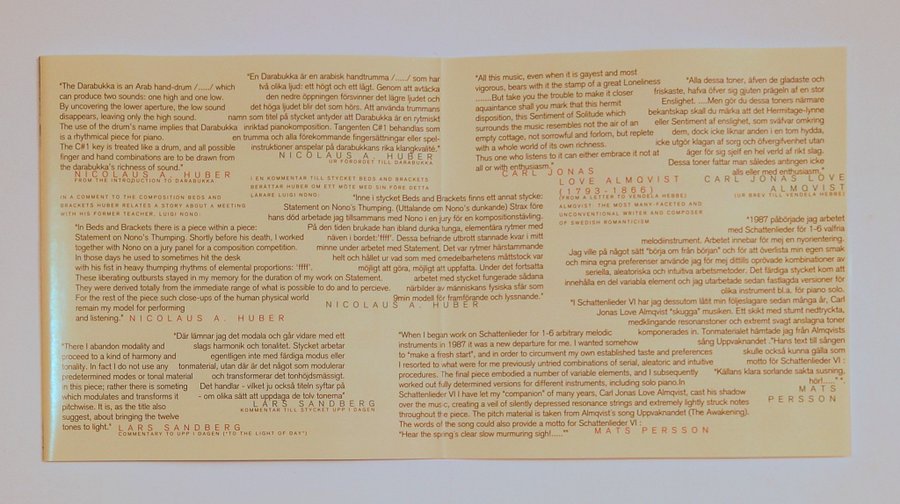 "The Darabukka is an Arab hand-drum /....../ which
can produce two sounds: one high and one low.
By uncovering the lower aperture, the low sound
disappears, leaving only the high sound.
The use of the drum's name implies that Darabukka
is a rhythmical piece for piano.
The C#1 key is treated like a drum, and all possible
finger and hand combinations are to be drawn from
the darabukka's richness of sound."
NICOLAUS A. HUBER
FROM THE INTRODUCTION TO DARABUKKA
"En Darabukka är en arabisk handtrumma /....../ som har
två olika ljud: ett högt och ett lågt. Genom att avtäcka
den nedre öppningen försvinner det lägre ljudet och
det höga ljudet blir det som hörs. Att använda trummans
namn som titel på stycket antyder att Darabukka är en rytmiskt
inriktad pianokomposition. Tangenten C#1 behandlas som
en trumma och alla förekommande fingersättningar eller spel-
instruktioner anspelar på darabukkans rika klangkvalité."
NICOLAUS A. HUBER
UR FÖRORDET TILL DARABUKKA
IN A COMMENT TO THE COMPOSITION BEDS AND
BRACKETS HUBER RELATES A STORY ABOUT A MEETING
WITH HIS FORMER TEACHER, LUIGI NONO:
"In Beds and Brackets there is a piece within a piece:
Statement on Nono's Thumping. Shortly before his death, I worked
together with Nono on a jury panel for a composition competition.
In those days he used to sometimes hit the desk
with his fist in heavy thumping rhythms of elemental proportions: 'ffff'.
These liberating outbursts stayed in my memory for the duration of my work on Statement.
They were derived totally from the immediate range of what is possible to do and to percieve.
For the rest of the piece such close-ups of the human physical world
remain my model for performing
and listening." NICOLAUS A. HUBER
I EN KOMMENTAR TILL STYCKET BEDS AND BRACKETS
BERÄTTAR HUBER OM ETT MÖTE MED SIN FÖRE DETTA
LÄRARE LUIGI NONO:
"Inne i stycket Beds and Brackets finns ett annat stycke:
Statement on Nono's Thumping. (Uttalande om Nono's dunkande) Strax före
hans död arbetade jag tillsammans med Nono i en jury för en kompositionstävling.
På den tiden brukade han ibland dunka tunga, elementära rytmer med
näven i bordet:'ffff'. Dessa befriande utbrott stannade kvar i mitt
minne under arbetet med Statement. Det var rytmer härstammande
helt och hållet ur vad som med omedelbarhetens måttstock var
möjligt att göra, möjligt att uppfatta. Under det fortsatta
arbetet med stycket fungerade sådana
närbilder av människans fysiska sfär som
min modell för framförande och lyssnande."
NICOLAUS A. HUBER
"There I abandon modality and
proceed to a kind of harmony and
tonality. In fact I do not use any
predetermined modes or tonal material
in this piece; rather there is someting
which modulates and transforms it
pitchwise. It is, as the title also
suggest, about bringing the twelve
tones to light." LARS SANDBERG
COMMENTARY TO UPP I DAGEN ("TO THE LIGHT OF DAY")
"Där lämnar jag det modala och går vidare med ett
slags harmonik och tonalitet. Stycket arbetar
egentligen inte med färdiga modus eller
tonmaterial, utan där är det något som modulerar
och transformerar det tonhöjdsmässigt.
Det handlar - vilket ju också titeln syftar på
- om olika sätt att uppdaga de tolv tonerna"
LARS SANDBERG
KOMMENTAR TILL STYCKET UPP I DAGEN
"All this music, even when it is gayest and most
vigorous, bears with it the stamp of a great Loneliness
........But take you the trouble to make it closer
aquaintance shall you mark that this hermit
disposition, this Sentiment of Solitude which
surrounds the music resembles not the air of an
empty cottage, not sorrowful and forlorn, but replete
with a whole world of its own richness.
Thus one who listens to it can either embrace it not at
all or with enthusiasm."
CARL JONAS
LOVE ALMQVIST
(1793-1866)
(FROM A LETTER TO VENDELA HEBBE)
ALMQVIST: THE MOST MANY-FACETED AND
UNCONVENTIONAL WRITER AND COMPOSER
OF SWEDISH ROMANTICISM
"Alla dessa toner, äfven de gladaste och
friskaste, hafva öfver sig guten prägeln af en stor
Enslighet. .....Men gör du dessa toners närmare
bekantskap skall du märka att det Hermitage-lynne
eller Sentiment af enslighet, som sväfvar omkring
dem, dock icke liknar anden i en tom hydda,
icke utgör klagan af sorg och öfvergifvenhet utan
äger för sig sjelf en hel verld af rikt slag.
Dessa toner fattar man således antingen icke
alls eller med enthusiasm."
CARL JONAS LOVE
ALMQVIST
(UR BREV TILL VENDELA HEBBE)
"1987 påbörjade jag arbetet
med Schattenlieder för 1-6 valfria
melodiinstrument. Arbetet innebar för mej en nyorientering.
Jag ville på något sätt "börja om från början" och för att överlista min egen smak
och mina egna preferenser använde jag för mej dittills oprövade kombinationer av
seriella, aleatoriska och intuitiva arbetsmetoder. Det färdiga stycket kom att
innehålla en del variabla element och jag utarbetade sedan fastlagda versioner för
olika instrument bl.a. för piano solo.
"I Schattenlieder VI har jag dessutom låtit min följeslagare sedan många år, Carl
Jonas Love Almqvist "skugga" musiken. Ett skikt med stumt nedtryckta,
medklingande resonanstoner och extremt svagt anslagna toner
komponerades in. Tonmaterialet hämtade jag från Almqvists
sång Uppvaknandet ."Hans text till sången
skulle också kunna gälla som
motto för Schattenlieder VI :
"Källans klara sorlande sakta susning,
hör!......" ".
MATS
PERSSON
"When I began work on Schattenlieder for 1-6 arbitrary melodic
instruments in 1987 it was a new departure for me. I wanted somehow
to "make a fresh start", and in order to circumvent my own established taste and preferences
I resorted to what were for me previously untried combinations of serial, aleatoric and intuitive
procedures. The final piece embodied a number of variable elements, and I subsequently
worked out fully determined versions for different instruments, including solo piano.In
Schattenlieder VI I have let my "companion" of many years, Carl Jonas Love Almqvist, cast his shadow
over the music, creating a veil of silently depressed resonance strings and extremely lightly struck notes
throughout the piece. The pitch material is taken from Almqvist's song Uppvaknandet (The Awakening).
The words of the song could also provide a motto for Schattenlieder VI :
"Hear the spring's clear slow murmuring sigh!....."" MATS PERSSON